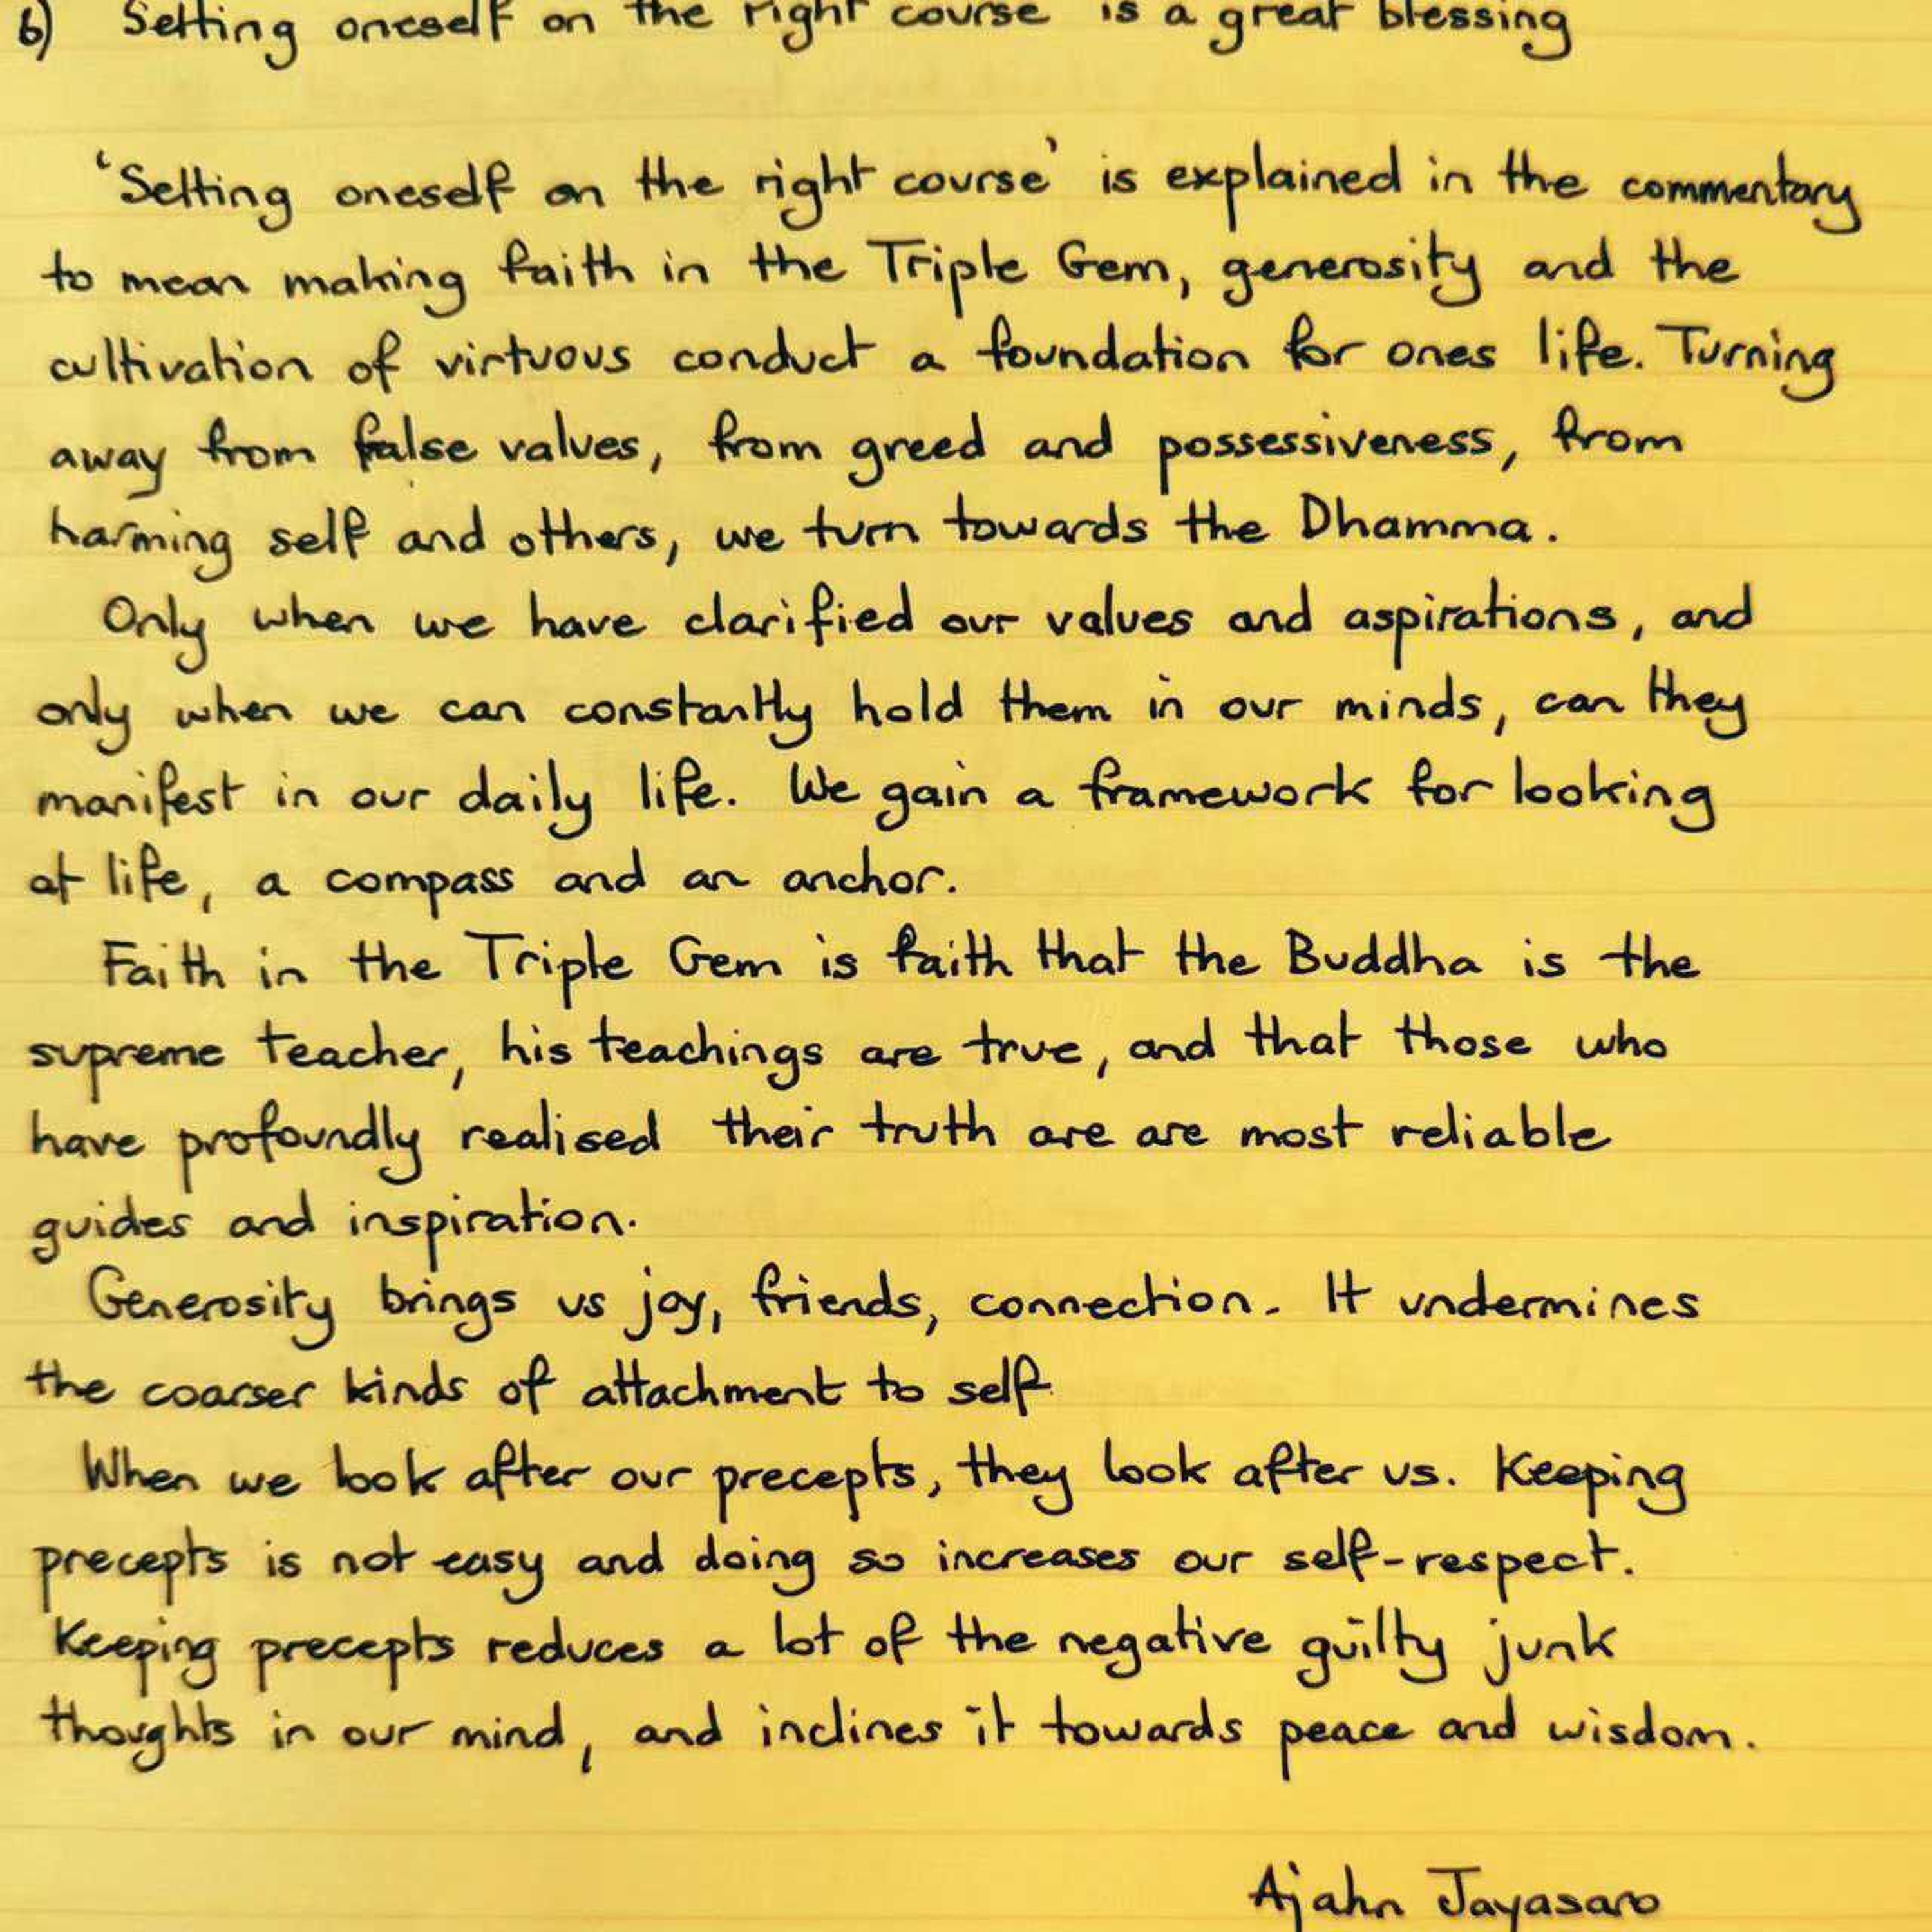 6) Setting oneself on the right course is a great blessing
‘Setting oneself on the right course’ is explained in the commentary
to mean making faith in the Triple Gem, generosity and the
cultivation of virtuous conduct a foundation for ones life. Turning
away from false values, from greed and possessiveness, from
harming self and others, we turn towards the Dhamma.
Only when we have clarified our values and aspirations, and
only when we can constantly hold them in our minds, can they
manifest in our daily life. We gain a framework for looking
at life, a compass and an anchor.
Faith in the Triple Gem is faith that the Buddha is the
supreme teacher, his teachings are true, and that those who
have profoundly realised their truth are are most reliable
guides and inspiration.
Generosity brings us joy, friends, connection. It undermines
the coarser kinds of attachment to self.
When we look after our precepts, they look after us. Keeping
precepts is not easy and doing so increases our self-respect.
Keeping precepts reduces a lot of the negative guilty junk
thoughts in our mind, and inclines it towards peace and wisdom.
Ajahn Jayasaro